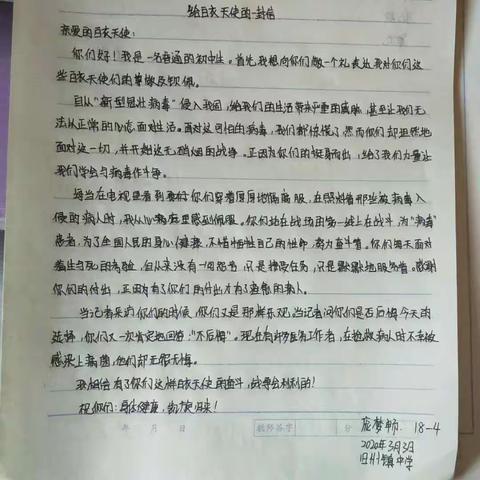 给白衣天使的一封信
亲爱的白衣天使:
你们好!我是一名普通的初中生。首先,我想向你们敬一个礼,表达我对你们这
些白衣天使们的尊敬及钦佩。
自从“新型冠状病毒”侵入我国,给我们的生活带来严重的威胁,甚至让我们无
法从正常的心态面对生活。面对这可怕的病毒,我们都惊慌了,然而你们却坦然地
面对这一切,并开始这无硝烟的战争。正因为你们的挺身而出,给了我们力量让
我们学会与病毒作斗争。
每当在电视里看到你们穿着厚厚地隔离服,在照料着那些被病毒入
侵的病人时,我从心底里感到佩服。你们站在战场的第一线上在战斗,为“病毒”
患者,为了全国人民的身心健康,不惜牺牲自己的性命,努力奋斗着。你们每天面对
着生与死的考验,但从来没有一句怨言,只是接受任务,只是默默地服务着。感谢
你们的付出,正因为有了你们的付出才有了康愈的病人。
当记者采访你们的时候,你们又是那样乐观,当记者问你们是否后悔今天的
选择,你们又一次肯定地回答:“不后悔”。现在有许多医务工作者,在抢救病人时不幸被
感染上病菌,他们却无怨无悔。
我相信有了你们这样白衣天使的奋斗,战争会胜利的!
祝你们:身体健康,凯旋归来!
年 月 日 教师签字 分
18-4
2020年3月3日
旧州镇中学